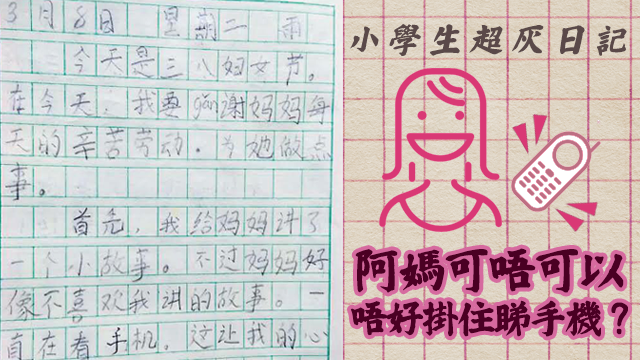 3月8日 星期二 雨
今天是三八妇女节。
在今天,我要gǎn谢妈妈每
天的辛苦劳动。为她做点
事。
首先,我给妈妈讲了
一个小故事。不过妈妈好
像不喜欢我讲的故事。一
直在看手机,这让我的心
小學生超灰日記
阿媽可唔可以
唔好掛住睇手機?